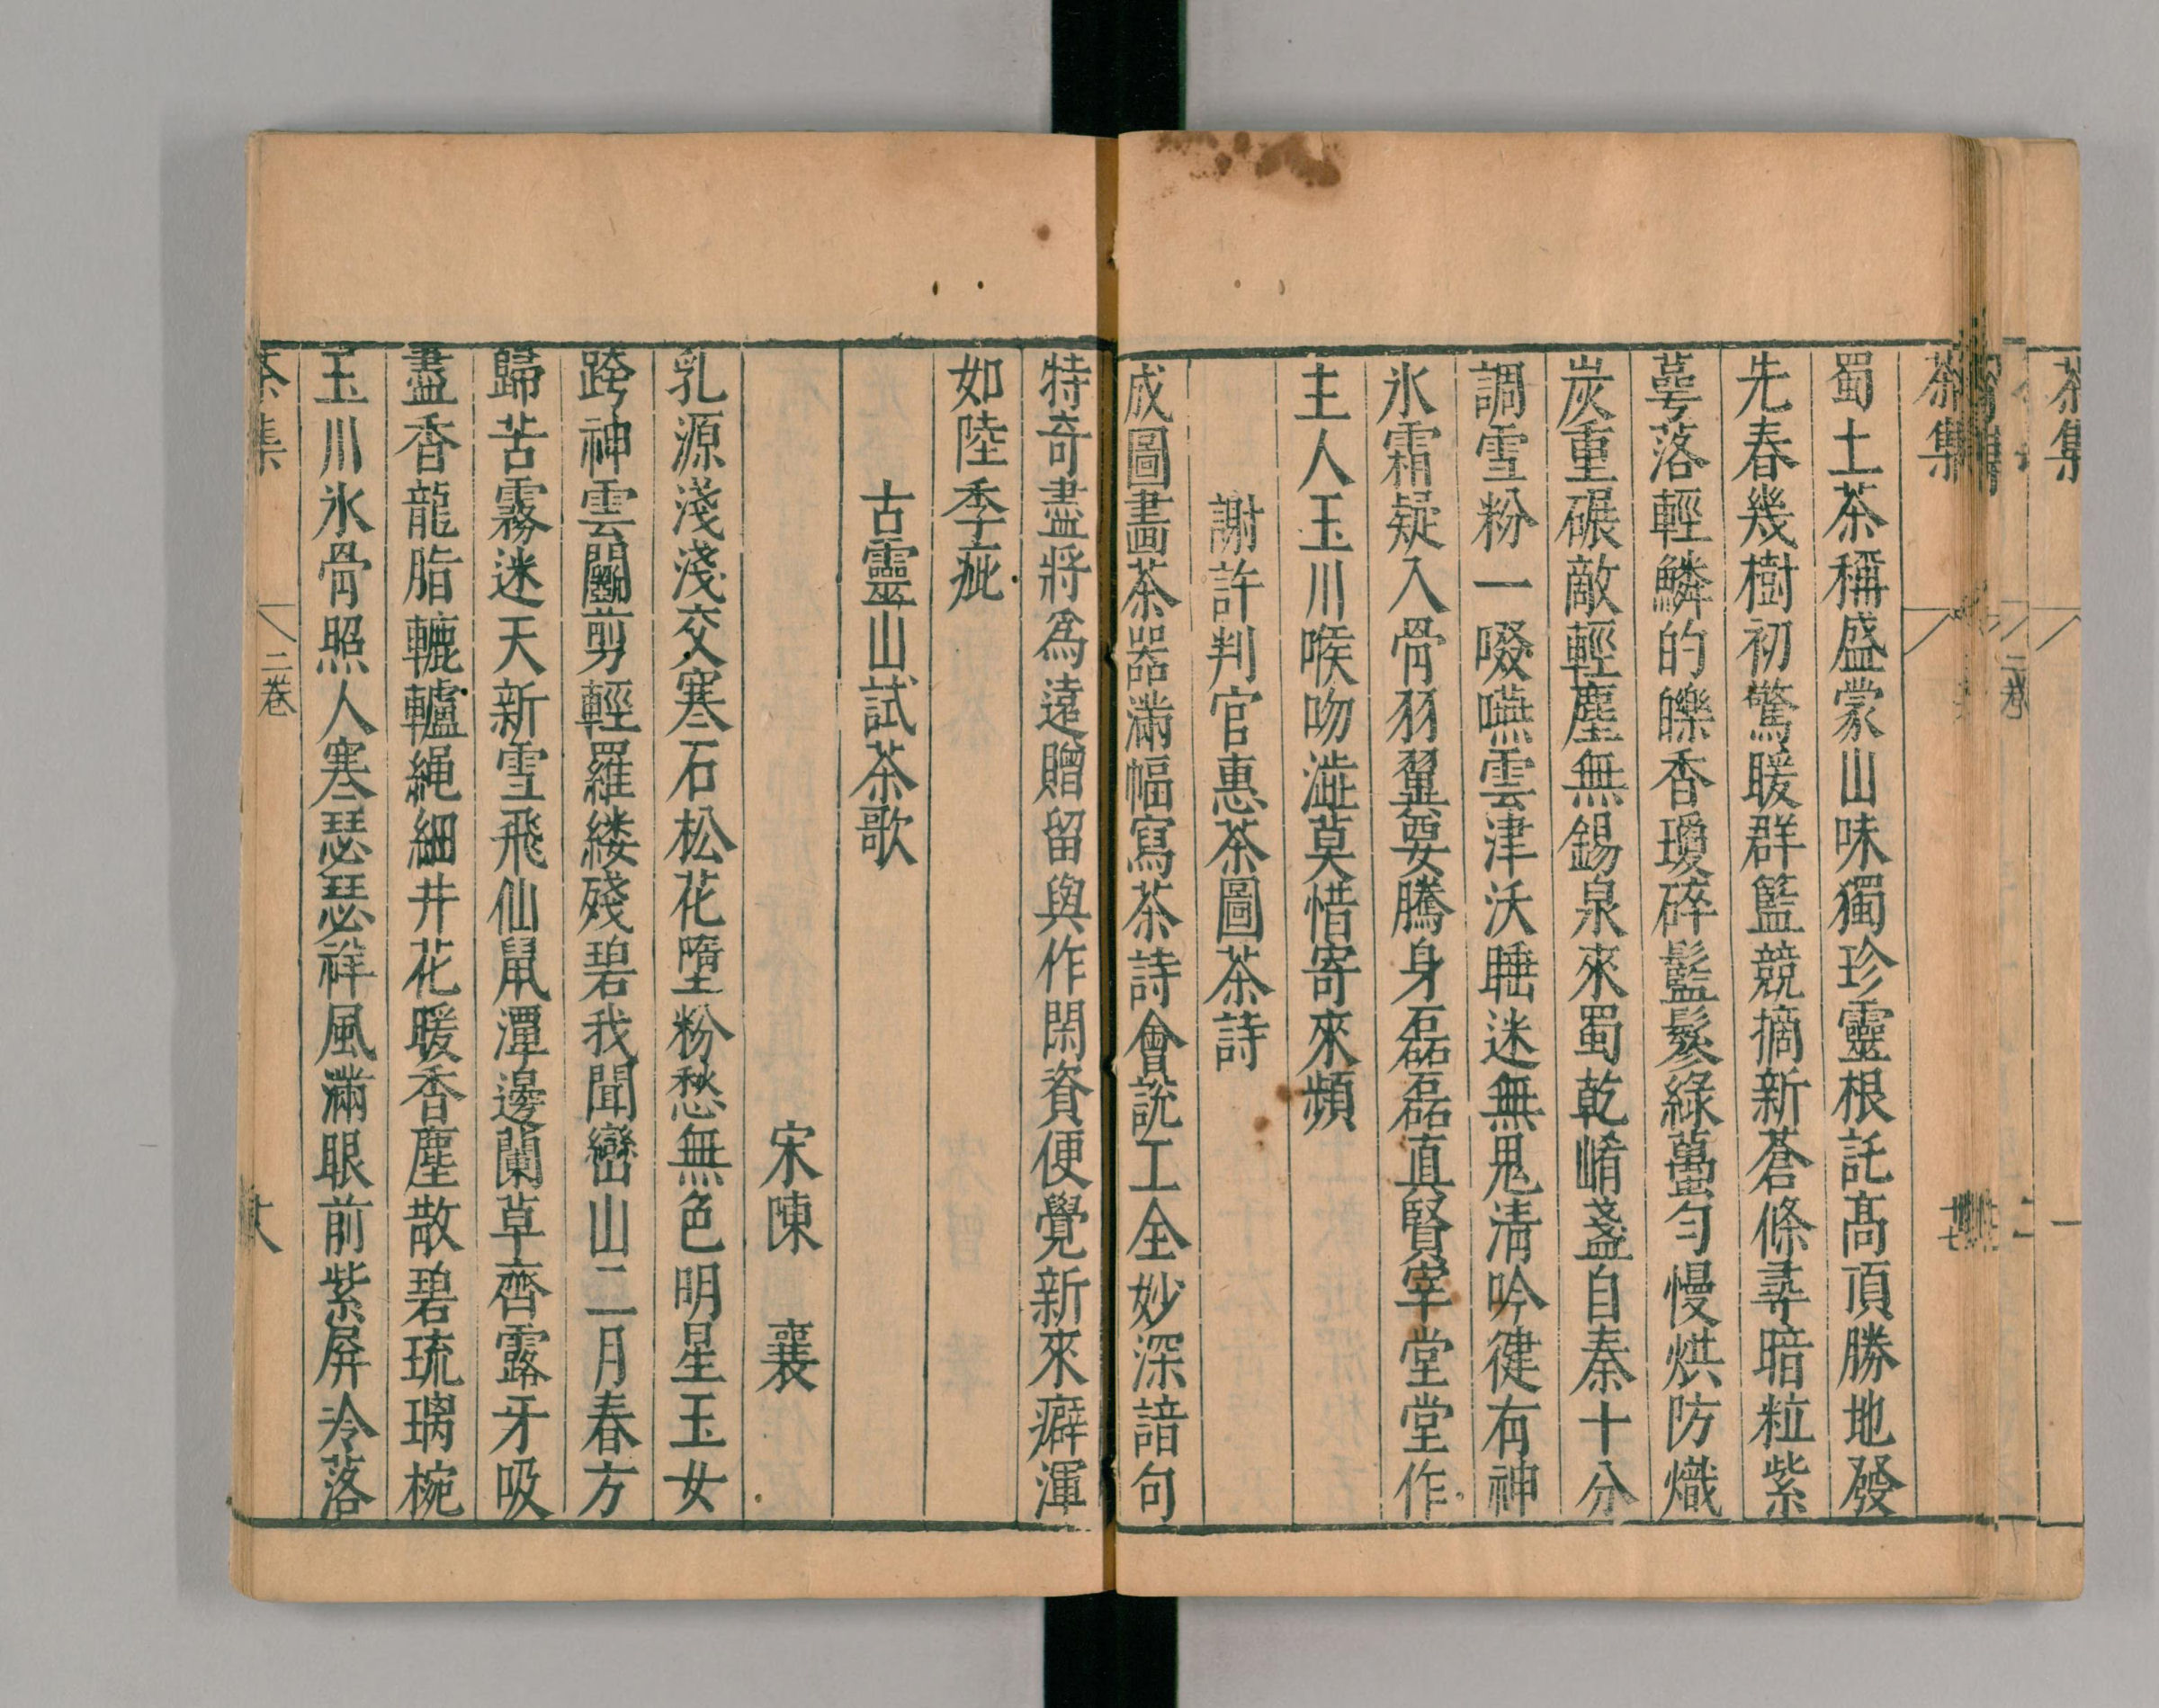 茶集
蜀土茶稱盛蒙山味獨珍靈根託高頂勝地發
先春幾樹初驚暖群籃競摘新蒼條尋暗粒紫
萼落輕鱗的皪香瓊碎鬖綠蠆勻慢烘防熾
炭重碾敵輕塵無錫泉來蜀乾崤盞自秦十分
調雪粉一啜嚥雲津沃睡迷無鬼清吟健有神
氷霜疑入骨羽翼要騰身磊磊直賢宰堂堂作
主人玉川喉吻澁莫惜寄來頻
謝許判官惠茶圖茶詩
成圖畫茶器滿幅寫茶詩會說工全妙深諳句
特奇盡將為遠贈留與作閑資便覺新來癖渾
如陸季疵
古靈山試茶歌
宋陳　襄
乳源淺淺交寒石松花墮粉愁無色明星玉女
跨神雲鬬剪輕羅縷殘碧我聞巒山二月春方
歸苦霧迷天新雪飛仙鼠潭邊蘭草齊露牙吸
盡香龍脂轆轤繩細井花暖香塵散碧琉璃椀
玉川氷骨照人寒瑟瑟祥風滿眼前紫屏冷落
茶集　二卷